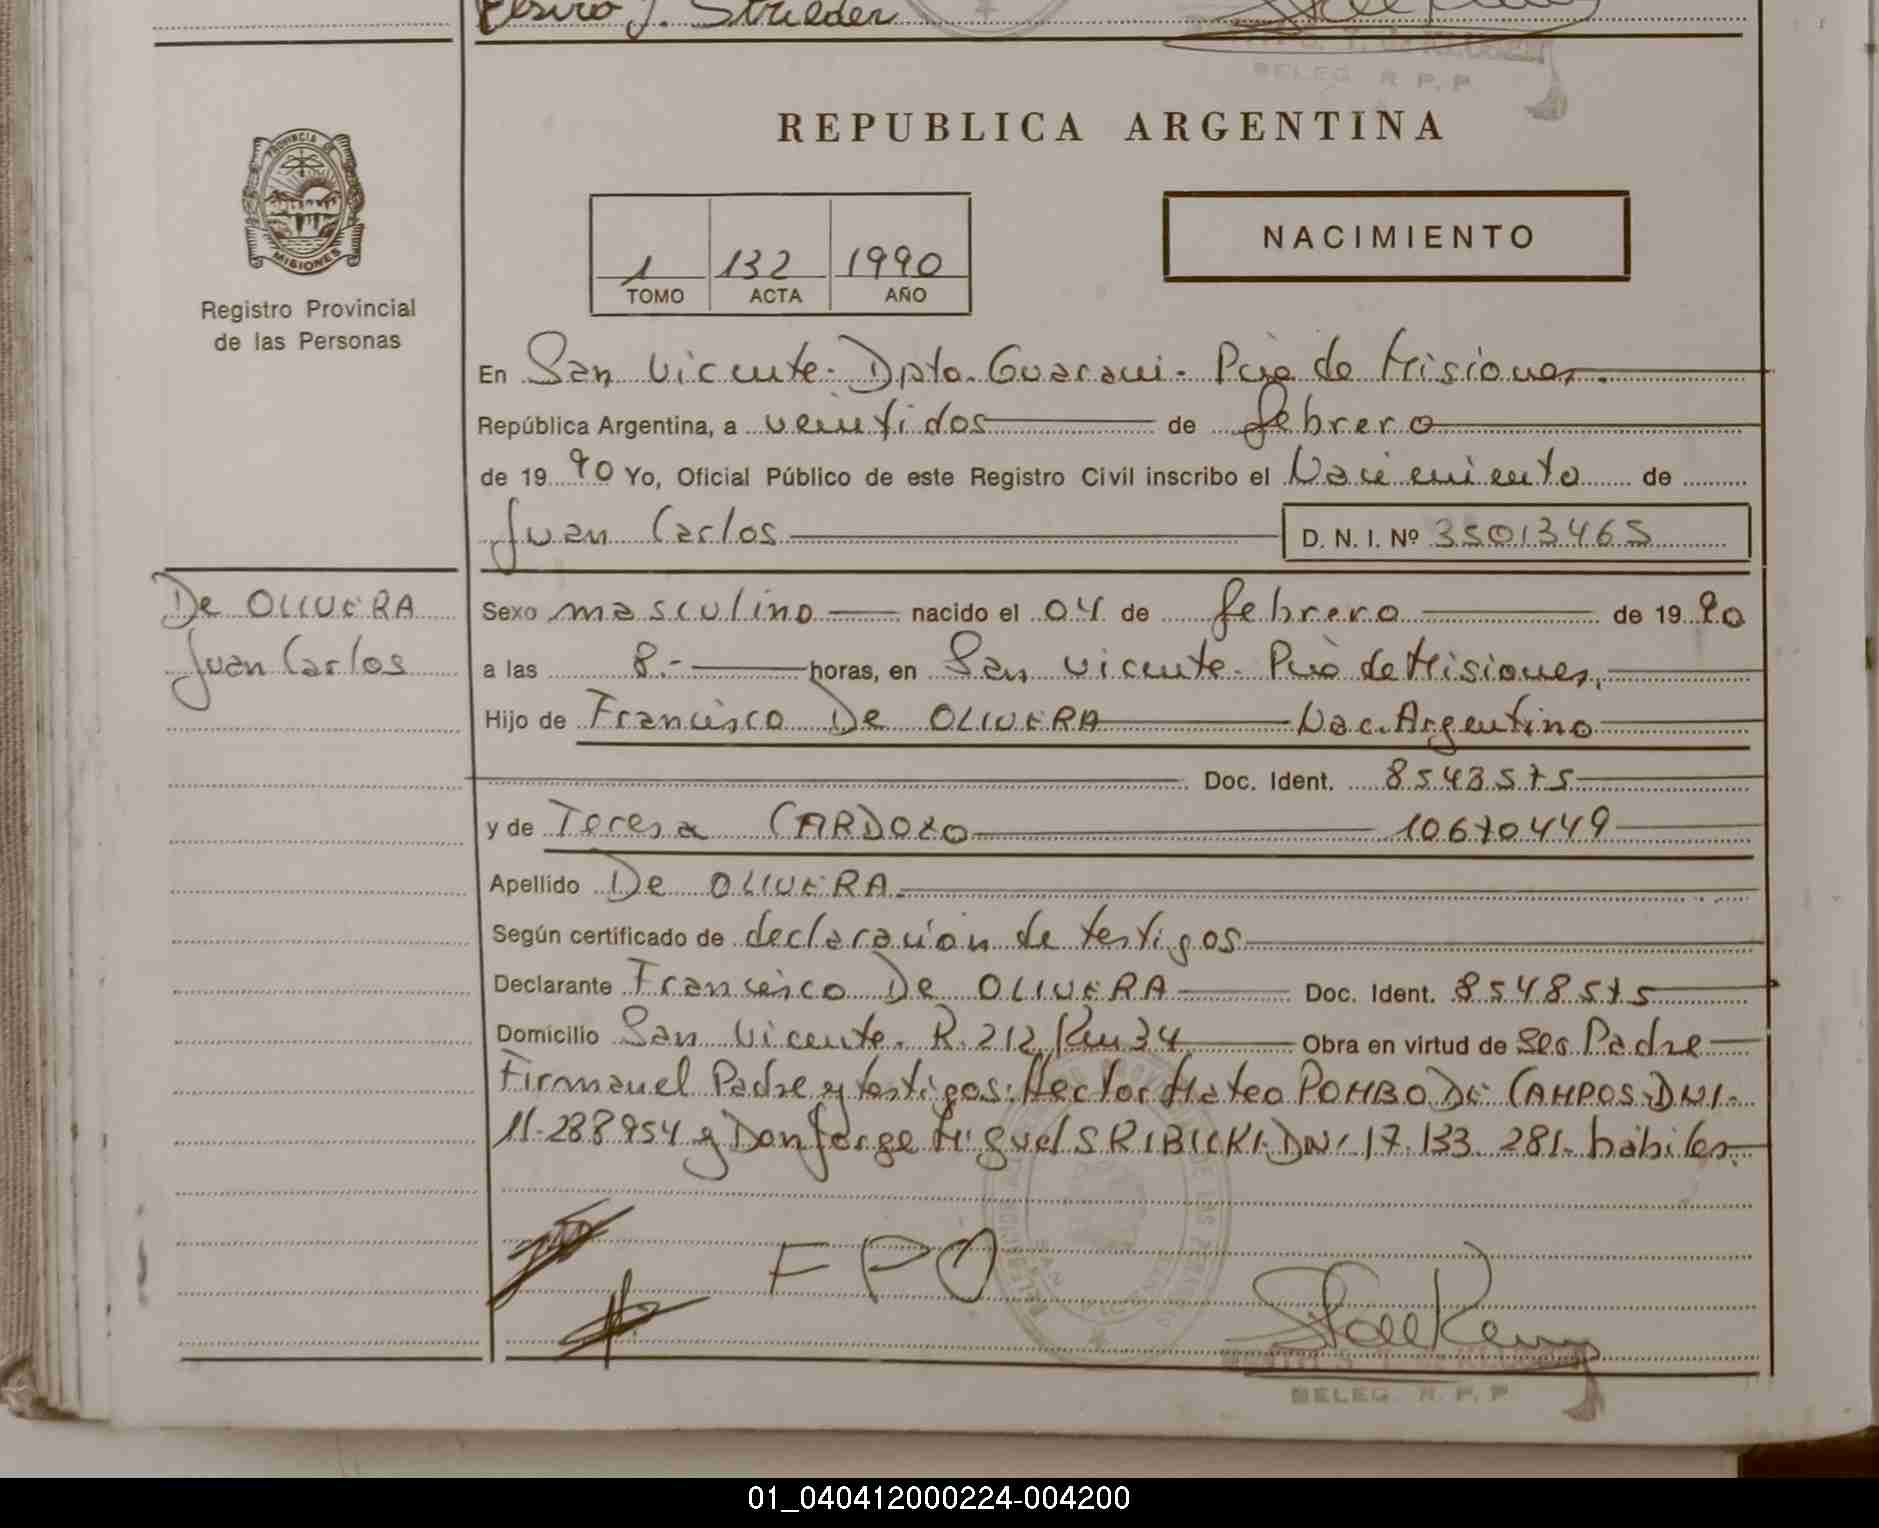 Elsiro J. Strieder
BELEG. R. P. P
REPUBLICA ARGENTINA
PROVINCIA DE
MISIONES
Registro Provincial
de las Personas
1 132 1990
TOMO ACTA AÑO
NACIMIENTO
En San Vicente - Dpto. Guarani - Pcia de Misiones.
República Argentina, a veintidos de febrero
de 19 90 Yo, Oficial Público de este Registro Civil inscribo el Nacimiento de
Juan Carlos D. N. I. Nº 35013465
De OLIVERA
Juan Carlos
Sexo masculino nacido el 04 de febrero de 19 90
a las 8.- horas, en San Vicente - Pcia de Misiones,
Hijo de Francisco De OLIVERA Nac. Argentino
Doc. Ident. 8548575
y de Teresa CARDOZO 10670449
Apellido De OLIVERA
Según certificado de declaración de testigos
Declarante Francisco De OLIVERA Doc. Ident. 8548575
Domicilio San Vicente. R. 212 Km 34 Obra en virtud de ser Padre
Firman el Padre y testigos: Hector Mateo POMBO DE CAMPOS DNI-
11-288954 y Don Jorge Miguel SRIBICKI. DNI 17.133.281- hábiles.
FPO
BELEG. R. P. P
01_040412000224-004200